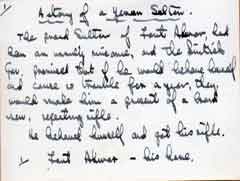 1
A story of a Yemen Sultan.
The grand Sultan of Fort Ahwar, had
been an unruly nuisance, and the British
Gov. promised that if he would behave himself
and cause no trouble for a year, they
would make him a present of a brand
new, repeating rifle.
He behaved himself and got his rifle.
1 Fort Ahwar – his home.